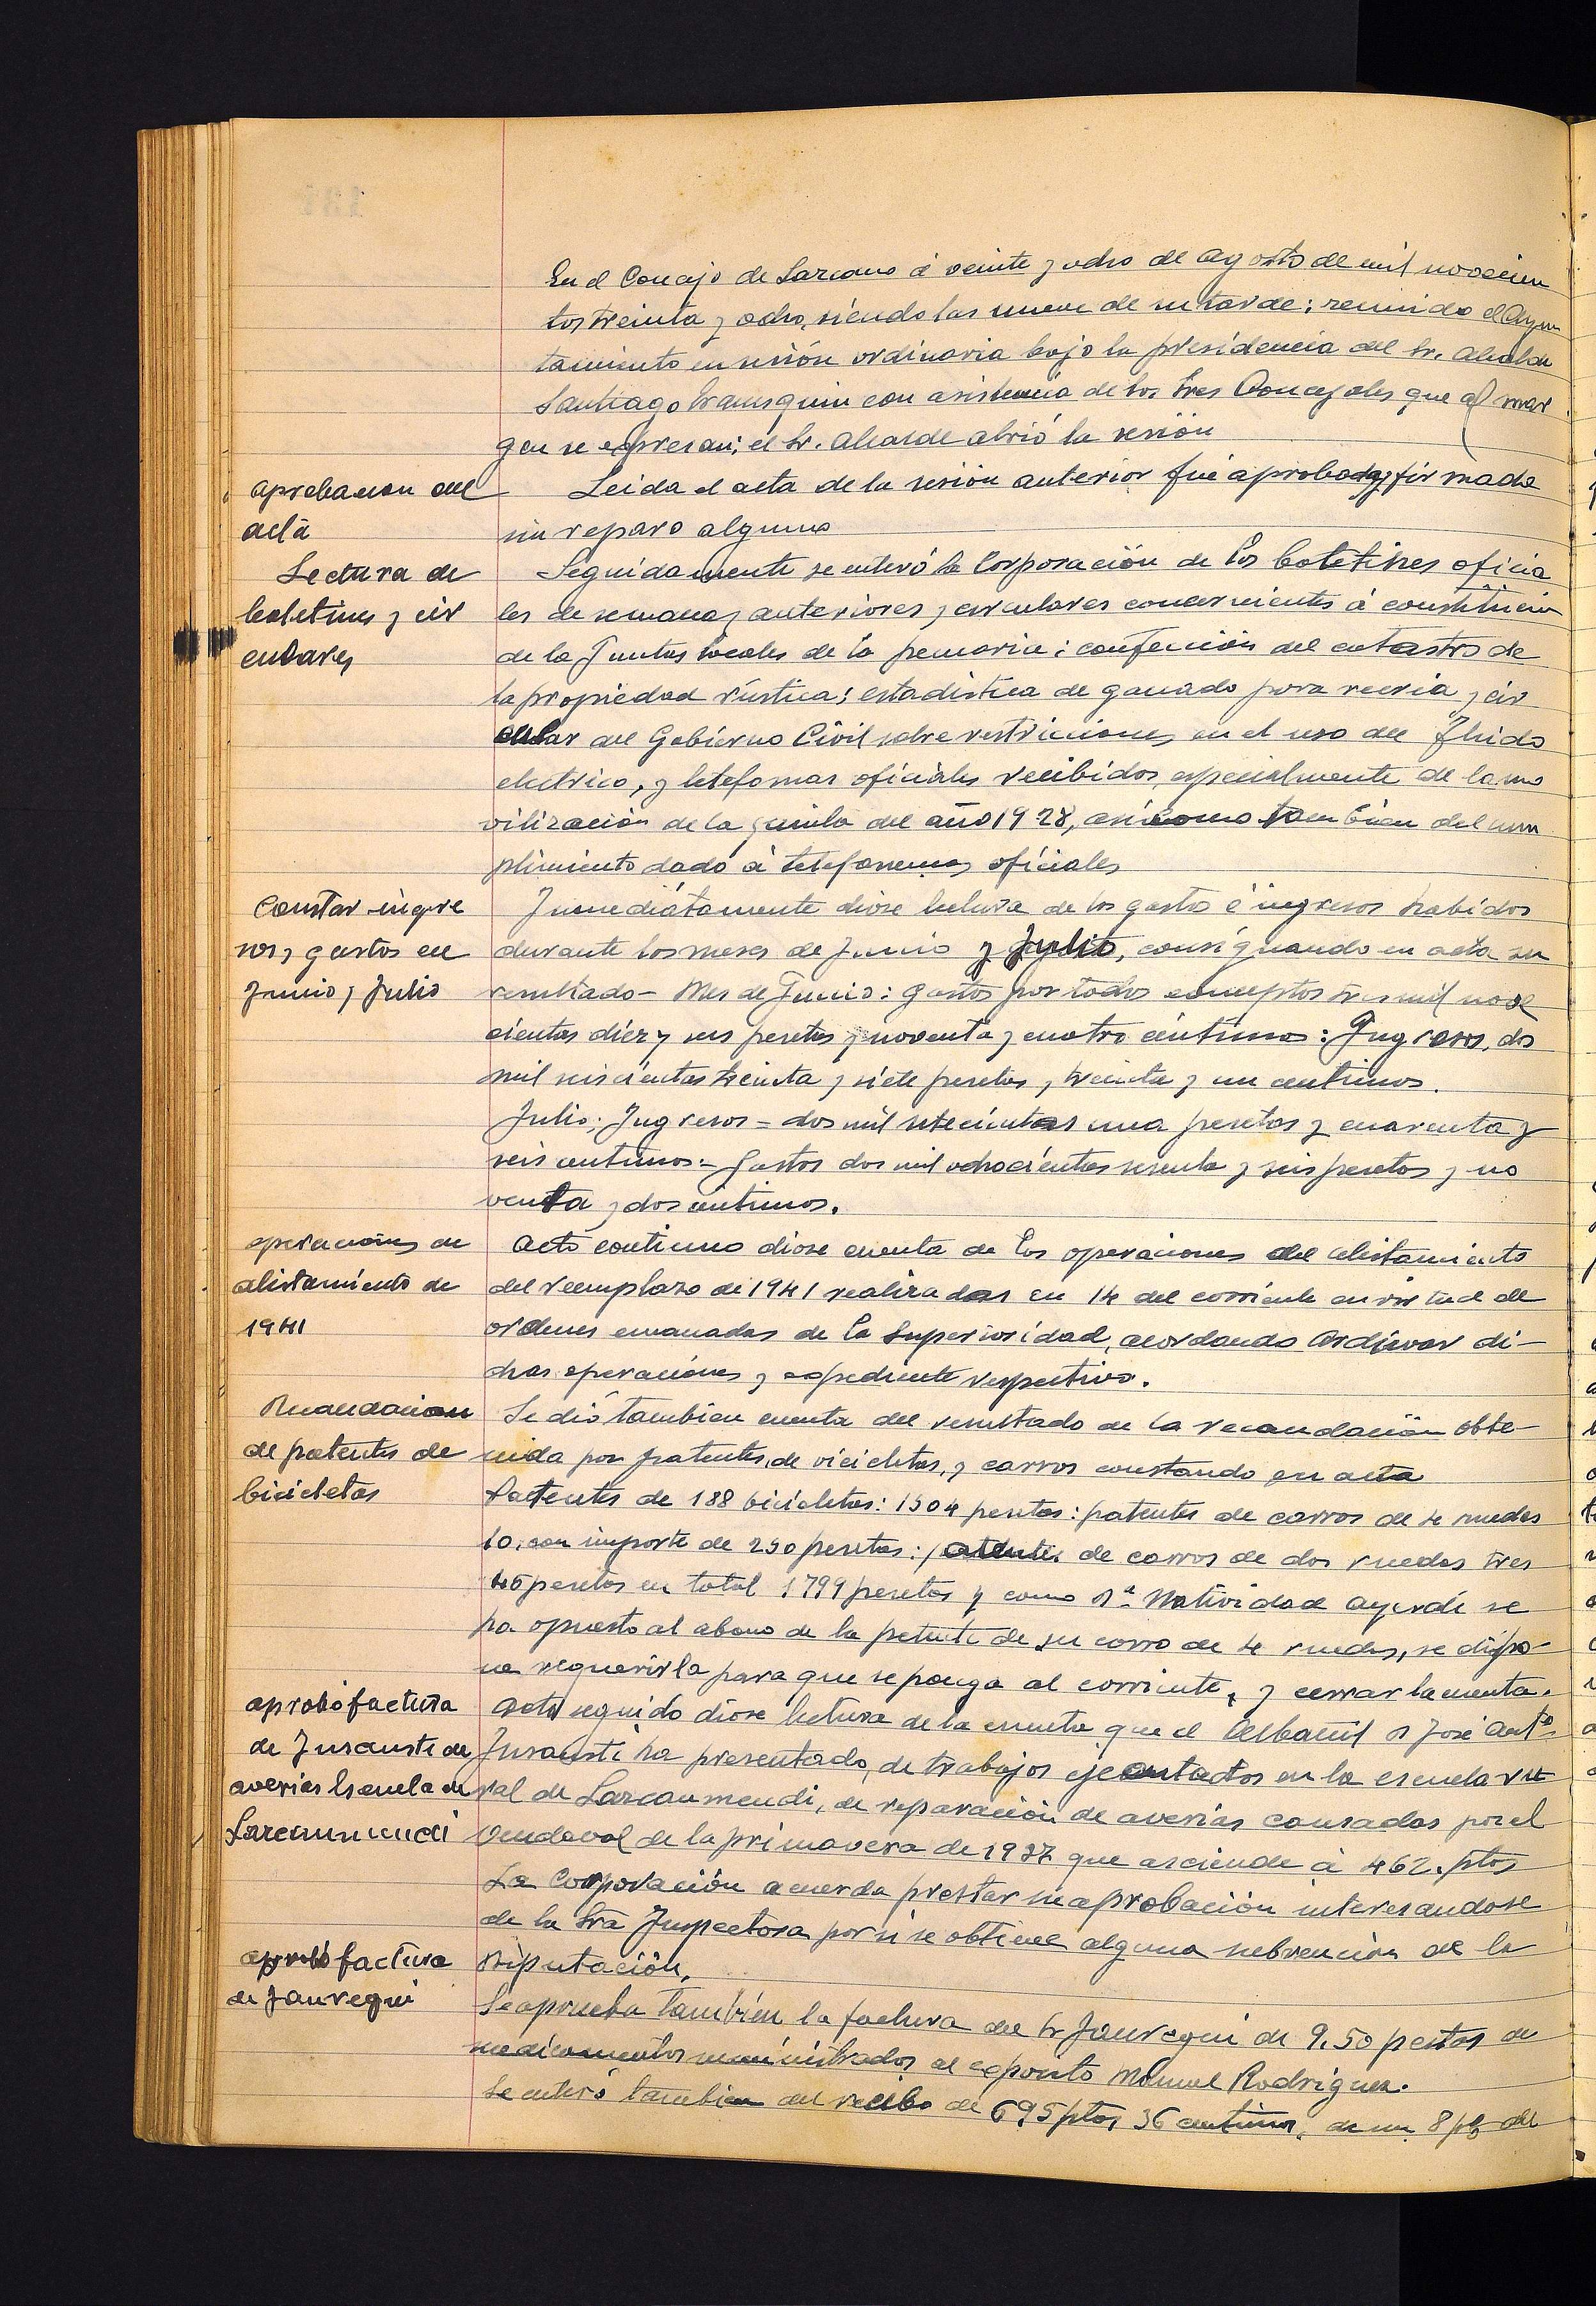 En el Concejo de Lazcano á veinte y ocho de Agosto de mil novecien
tos treinta y ocho, siendo las nueve de su tarde; reunido el Ayun
tamiento en sesión ordinaria bajo la presidencia del Sr. Alcalde
Santiago con asistencia de los tres Concejales que al mar
gen se expresan; el Sr. Alcalde abrió la sesión
aprobacion del
acta
Leida el acta de la sesión anterior fué aprobada y firmada
sin reparo alguno
Lectura de
boletines y cir
culares
Seguidamente se enteró la Corporación de los boletines oficia
les de semanas anteriores y circulares concernientes á constitución
de la Juntas locales de la pecuaria; confección del catastro de
la propiedad rústica; estadística de ganado para recria y cir
cular del Gobierno Civil sobre restricciones en el uso del fluido
electrico, y telefomas oficiales recibidos especialmente de la mo
vilización de la quinta del año 1928, asi como tambien del cum
plimiento dado á telefonemas oficiales
Constar ingre
sos y gastos en
Junio y Julio
Inmediátamente diose lectura de los gastos é ingresos habidos
durante los meses de Junio y Julio, consignando en acta su
resultado - Mes de Junio: gastos por todos conceptos tres mil nove
cientas diez y seis pesetas y noventa y cuatro céntimos: Ingresos, dos
mil seiscientas treinta y siete pesetas y treinta y un centimos.
Julio; Ingresos = dos mil setecientas una pesetas y cuarenta y
seis centimos = Gastos dos mil ochocientas sesenta y seis pesetas y no
venta y dos centimos.
operaciones de
alistamiento de
1941
Acto continuo diose cuenta de los operaciones del alistamiento
del reemplazo de 1941 realizadas en 14 del corriente en virtud de
ordenes emanadas de la Superioridad, acordando archivar di-
chas operaciones y expediente respectivo.
Recaudacion
de patentes de
bicicletas
Se dió tambien cuenta del resultado de la recaudación obte-
nida por patentes, de vicicletas, y carros constando en acta
Patentes de 188 bicicletas: 1504 pesetas: patentes de carros de 4 ruedas
10, con importe de 250 pesetas: patentes de carros de dos ruedas tres
45 pesetas en total 1799 pesetas y como Dª Natividad Ayerdi se
ha opuesto al abono de la patente de su carro de 4 ruedas, se dispo-
ne requerirla para que se ponga al corriente, y cerrar la cuenta.
aprobó factura
de Insausti de
averias Escuela de
Lazcaumendi
Acto seguido diose lectura de la cuenta que el Albañil D José Antº
Insausti ha presentado, de trabajos ejecutados en la escuela ru
ral de Lazcaumendi, de reparación de averias causadas por el
Vendaval de la primavera de 1937 que asciende á 462. ptas
La Corporación acuerda prestar su aprobación interesandose
de la Sra Inspectora por si se obtiene alguna subvención de la
Diputación.
aprobó factura
de Jauregui
Se aprueba también la factura del Sr Jauregui de 9.50 pesetas de
medicamentos suministrados al exposito Manuel Rodriguez.
Se enteró tambien del recibo de 695 ptas 36 centimos,